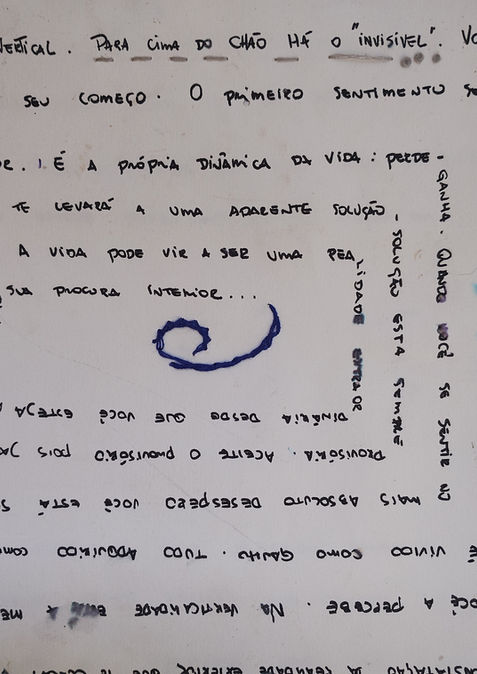 VERTICAL. PARA CIMA DO CHÃO HÁ O "INVISÍVEL".
SEU COMEÇO. O PRIMEIRO SENTIMENTO
É A PRÓPRIA DINÂMICA DA VIDA: PERDE-
GANHA. QUANDO VOCÊ SE SENTIR NO
TE LEVARÁ A UMA APARENTE SOLUÇÃO
- SOLUÇÃO ESTA SEMPRE
A VIDA PODE VIR A SER UMA REA
LIDADE EXTRAOR
SUA PROCURA INTERIOR...
DINÁRIA DESDE QUE VOCÊ ESTEJA
PROVISÓRIA. ACEITE O PROVISÓRIO POIS
MAIS ABSOLUTO DESESPERO VOCÊ ESTÁ
VIVIDO COMO GANHO. TUDO ADQUIRIDO
A PERCEBE. NA VERTICALIDADE
EXTERIOR QUE